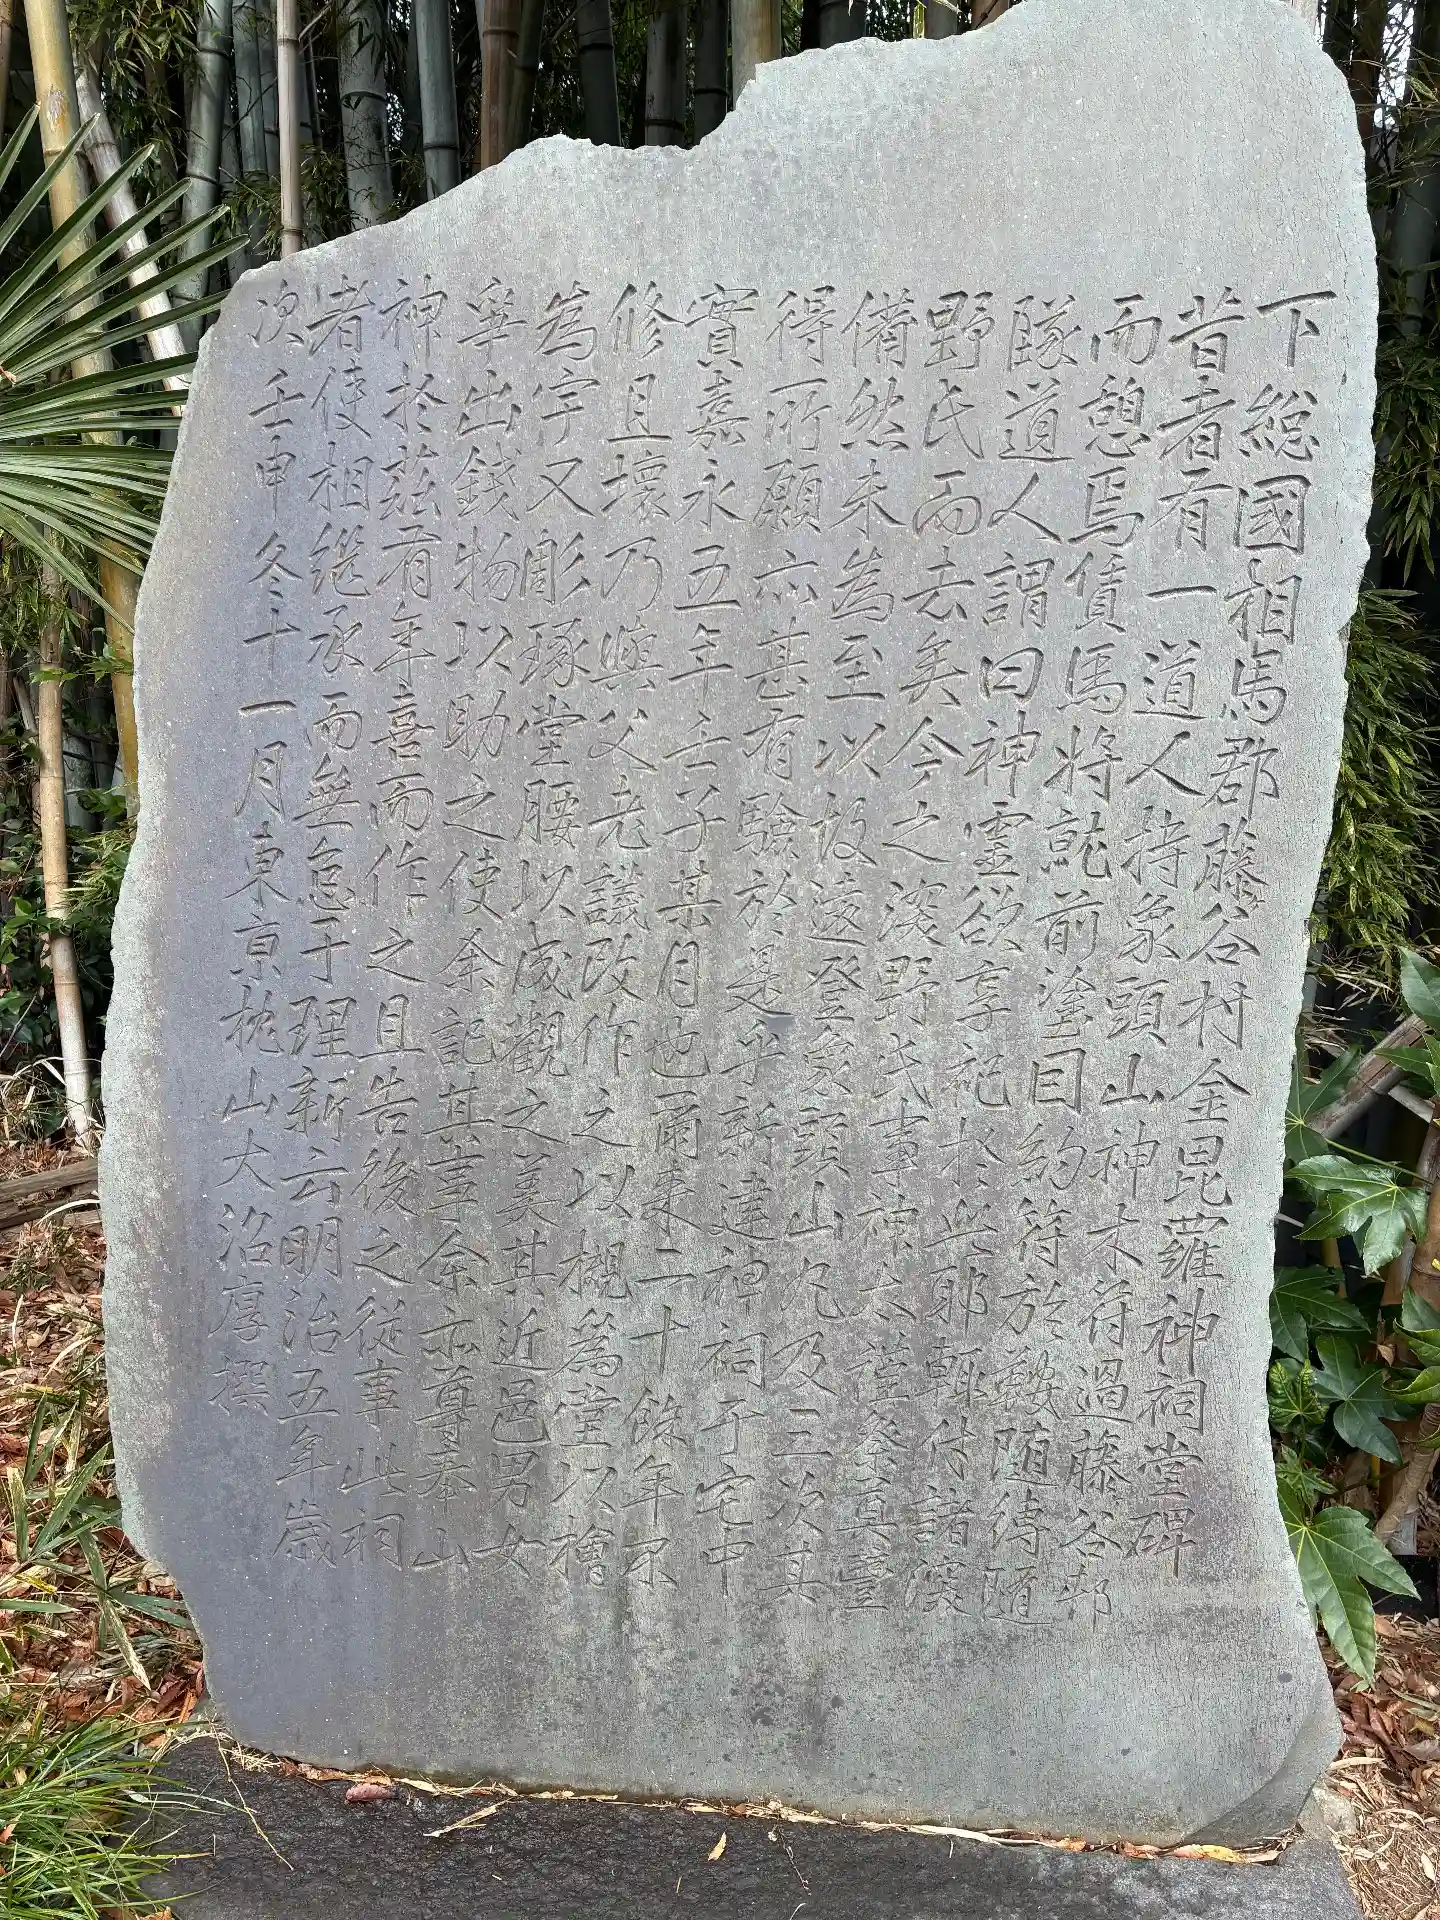 下総國相馬郡藤谷村金毘羅神祠堂碑
昔者有一道人持象頭山神木符過藤谷邨
而憩焉賃馬将就前塗因約符於鞍随待随
隊道人謂曰神靈欲享祀於此耶輙付諸深
野氏而去矣今之深野氏事神太謹登真臺
備然未為至以故遠登象頭山凡乃三次其
得所願亦甚有驗於是乎新建神祠于宅中
實嘉永五年壬子某月也爾来二十餘年不
修且壊乃與父老議改作之以槻為堂以檜
為宇又彫琢堂腰以成觀之美其近邑男女
寧出錢物以助之使余記其事余亦尊奉山
神於茲有年喜而作之且告後之従事此祠
者使相継承而無怠于理新云明治五年歳
次壬申冬十一月東京枕山大沼厚撰